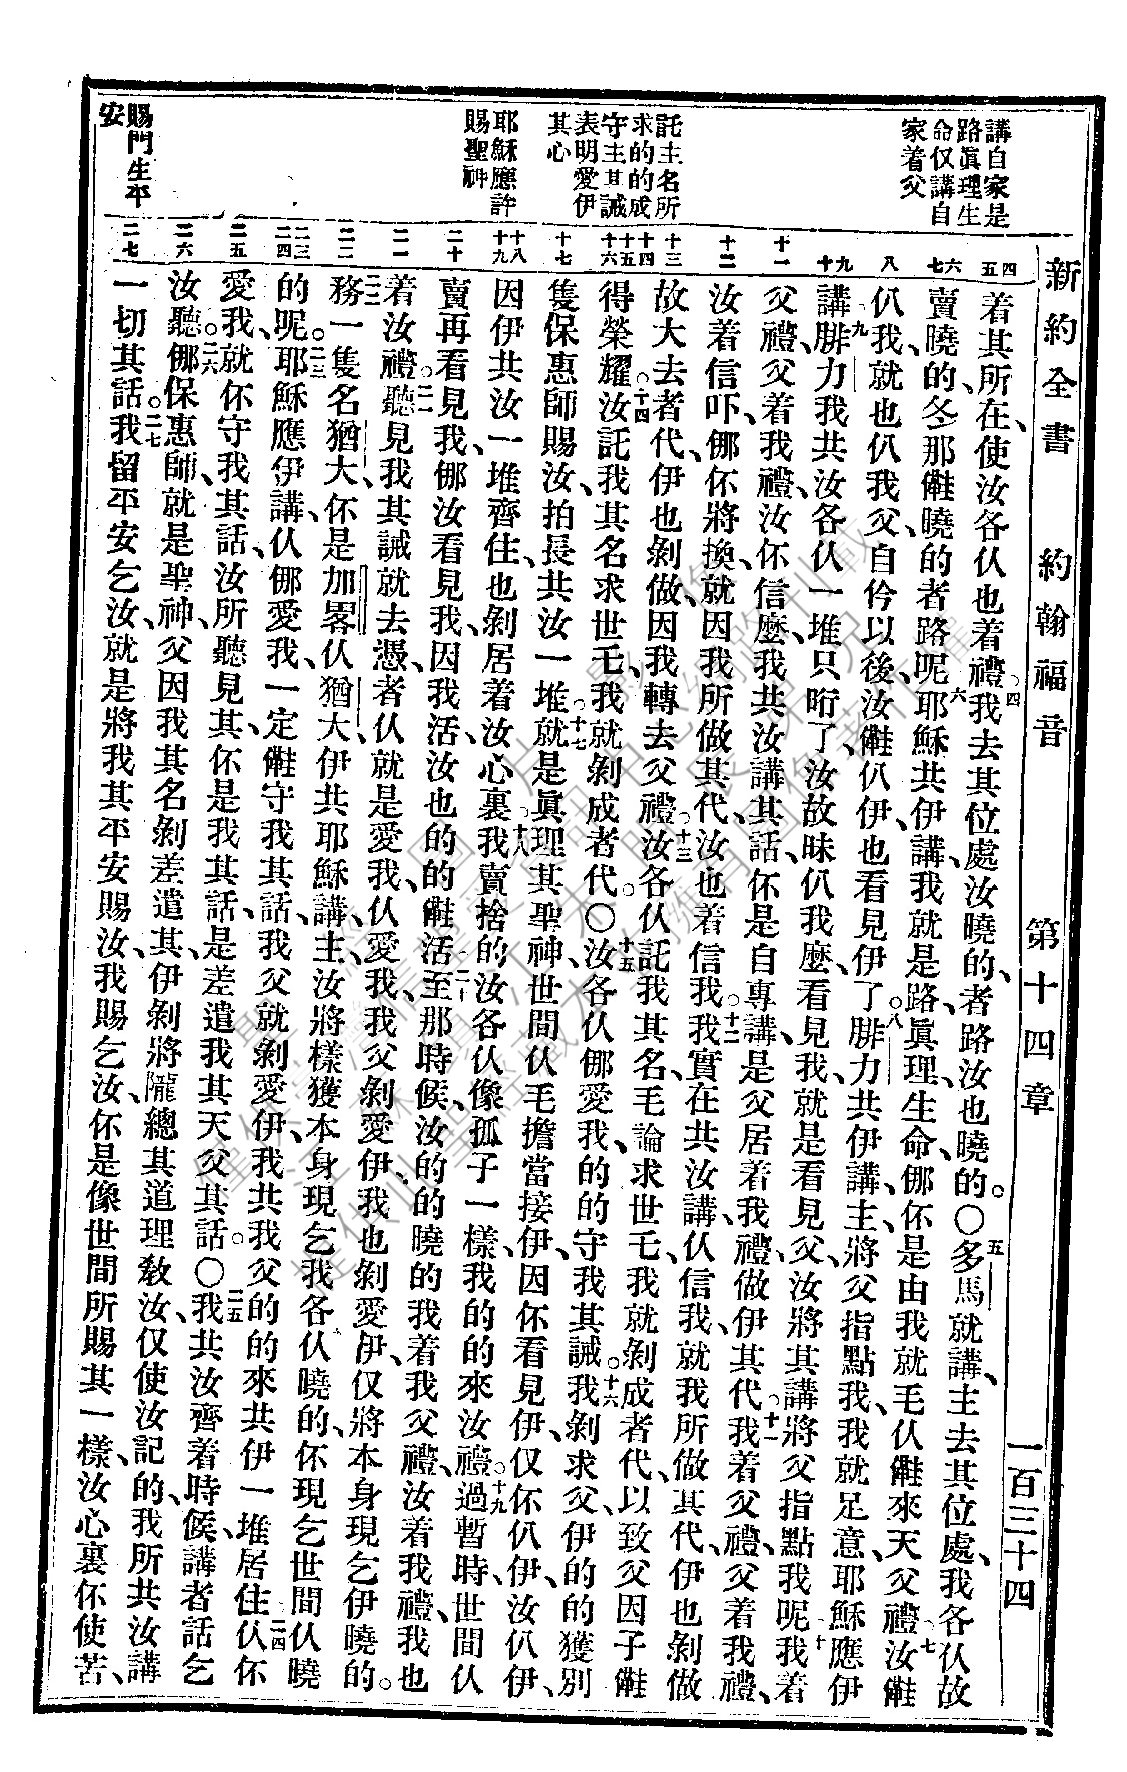 新約全書　約翰福音　第十四章　一百三十四
講自家是
路眞理生
命仅講自
家着父
託主名所
求的的成
守主其誡
表明愛伊
其心
耶穌應許
賜聖神
賜門生平
安
四
五
六
七
八
九
十
十一
十二
十三
十四
十五
十六
十七
十八
十九
二十
二一
二二
二三
二四
二五
二六
二七
着其所在、使汝各仈也着禮。四我去其位處汝曉的、者路汝也曉的。〇五多馬就講、主去其位處、我各仈故
賣曉的、冬那𠆧曉的者路呢。六耶穌共伊講、我就是路、眞理、生命、𠋡伓是由我就毛仈𠆧來天父禮。七汝𠆧
仈我、就也仈我父、自伶以後、汝𠆧仈伊、也看見伊了。八腓力共伊講、主、將父指點我、我就足意。九耶穌應伊
講、腓力、我共汝各仈一堆只昫了、汝故昧仈我麼、看見我、就是看見父、汝將其講將父指點我呢。十我着
父禮、父着我禮、汝伓信麼、我共汝講其話、伓是自專講、是父居着我禮、做伊其代。十一我着父禮、父着我禮、
汝着信吓、𠋡伓將換、就因我所做其代、汝也着信我。十二我實在共汝講、仈信我、就我所做其代、伊也剝做、
故大去者代、伊也剝做、因我轉去父禮。十三汝各仈託我其名、毛論求世乇、我就剝成者代、以致父因子𠆧
得榮耀。十四汝託我其名求世乇、我就剝成者代。〇十五汝各仈𠋡愛我、的的守我其誡。十六我剝求父、伊的的獲別
隻保惠師賜汝、拍長共汝一堆。十七就是眞理其聖神、世間仈毛擔當接伊、因伓看見伊、仅伓仈伊、汝仈伊、
因伊共汝一堆齊住、也剝居着汝心裏。十八我賣捨的汝各仈像孤子一樣、我的的來汝禮。十九過暫時、世間仈
賣再看見我、𠋡汝看見我、因我活、汝也的的𠆧活。二十至那時候、汝的的曉的我着我父禮、汝着我禮、我也
着汝禮。二一聽見我其誡就去憑者仈、就是愛我、仈愛我、我父剝愛伊、我也剝愛伊、仅將本身現乞伊曉的。
二二務一隻名猶大、伓是加畧仈猶大、伊共耶穌講、主、汝將樣獲本身現乞我各仈曉的、伓現乞世間仈曉
的呢。二三耶穌應伊講、仈𠋡愛我、一定𠆧守我其話、我父就剝愛伊、我共我父的的來共伊一堆居住。二四仈伓
愛我、就伓守我其話、汝所聽見其、伓是我其話、是差遣我其天父其話。〇二五我共汝齊着時候、講者話乞
汝聽。二六𠋡保惠師、就是聖神、父因我其名剝差遣其、伊剝將隴總其道理敎汝、仅使汝記的我所共汝講
一切其話。二七我留平安乞汝、就是將我其平安賜汝、我賜乞汝、伓是像世間所賜其一樣、汝心裏伓使苦、